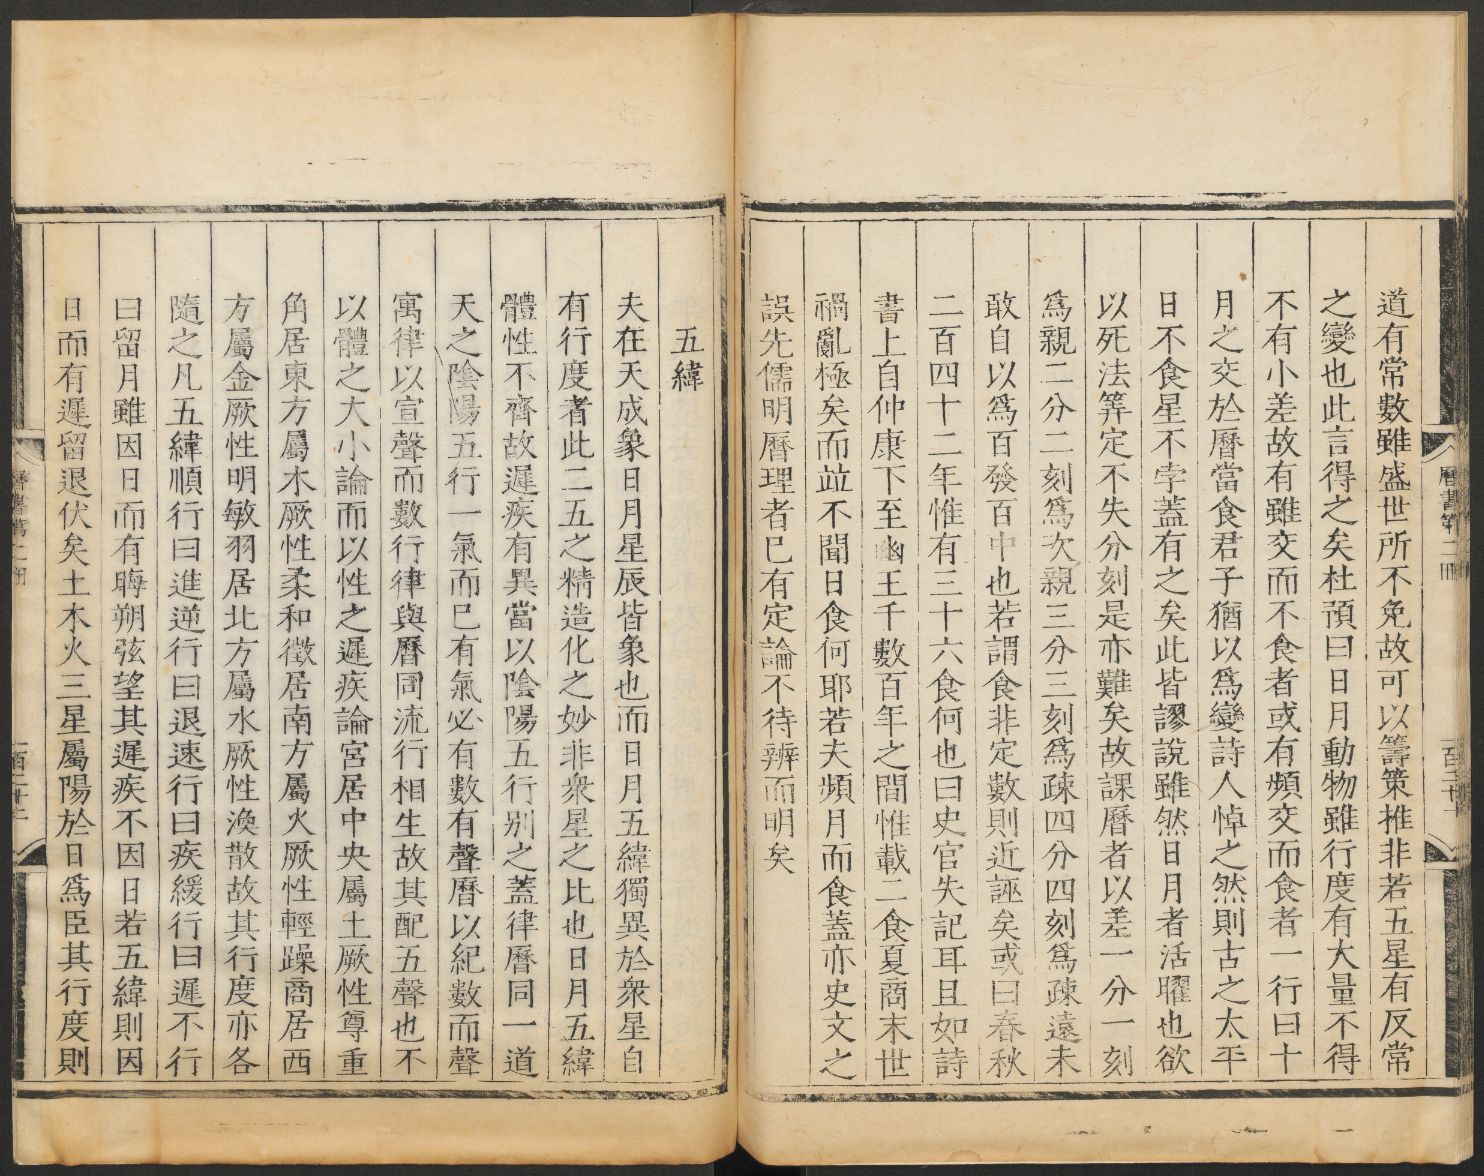 道有常數雖盛世所不免故可以籌策推非若五星有反常
之變也此言得之矣杜預曰日月動物雖行度有大量不得
不有小差故有雖交而不食者或有頻交而食者一行曰十
月之交於曆當食君子猶以爲變詩人悼之然則古之太平
日不食星不孛蓋有之矣此皆謬說雖然日月者活曜也欲
以死法筭定不失分刻是亦難矣故課曆者以差一分一刻
爲親二分二刻爲次親三分三刻爲疎四分四刻爲疎遠未
敢自以爲百發百中也若謂食非定數則近誣矣或曰春秋
二百四十二年惟有三十六食何也曰史官失記耳且如詩
書上自仲康下至幽王千數百年之間惟載二食夏商末世
禍亂極矣而竝不聞日食何耶若夫頻月而食蓋亦史文之
誤先儒明曆理者已有定論不待辨而明矣
曆書第二冊
一百二十二
五緯
夫在天成象日月星辰皆象也而日月五緯獨異於衆星自
有行度者此二五之精造化之妙非衆星之比也日月五緯
體性不齊故遲疾有異當以陰陽五行別之蓋律曆同一道
天之陰陽五行一氣而已有氣必有數有聲曆以紀數而聲
寓律以宣聲而數行律與曆同流行相生故其配五聲也不
以體之大小論而以性之遲疾論宮居中央屬土厥性尊重
角居東方屬木厥性柔和徵居南方屬火厥性輕躁商居西
方屬金厥性明敏羽居北方屬水厥性渙散故其行度亦各
隨之凡五緯順行曰進逆行曰退速行曰疾緩行曰遲不行
曰留月雖因日而有晦朔弦望其遲疾不因日若五緯則因
日而有遲留退伏矣土木火三星屬陽於日爲臣其行度則
曆書第二冊